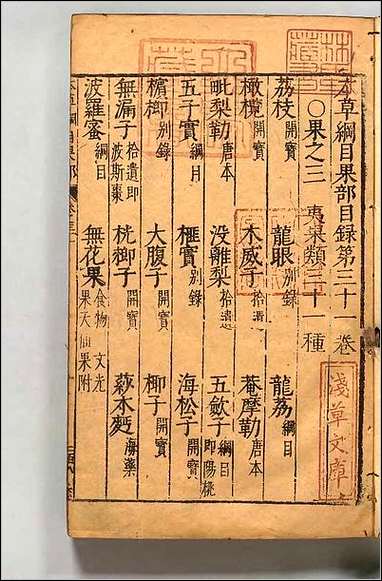 本草綱目果部目録第三十一卷
○果之三 夷果類三十一種
荔枝 開寶 龍眼 別錄 龍荔 綱目
橄欖 開寶 木威子 拾遺 菴摩勒 唐本
毗梨勒 唐本 没離梨 拾遺 五歛子 綱目 即陽桃
五子實 綱目 榧實 別錄 海松子 開寶
檳榔 別錄 大腹子 開寶 椰子 開寶
無漏子 拾遺 即波斯棗 桄榔子 開寶 莎木麪 海藥
波羅蜜 綱目 無花果 食物 文光果 天仙果附
淺草文庫